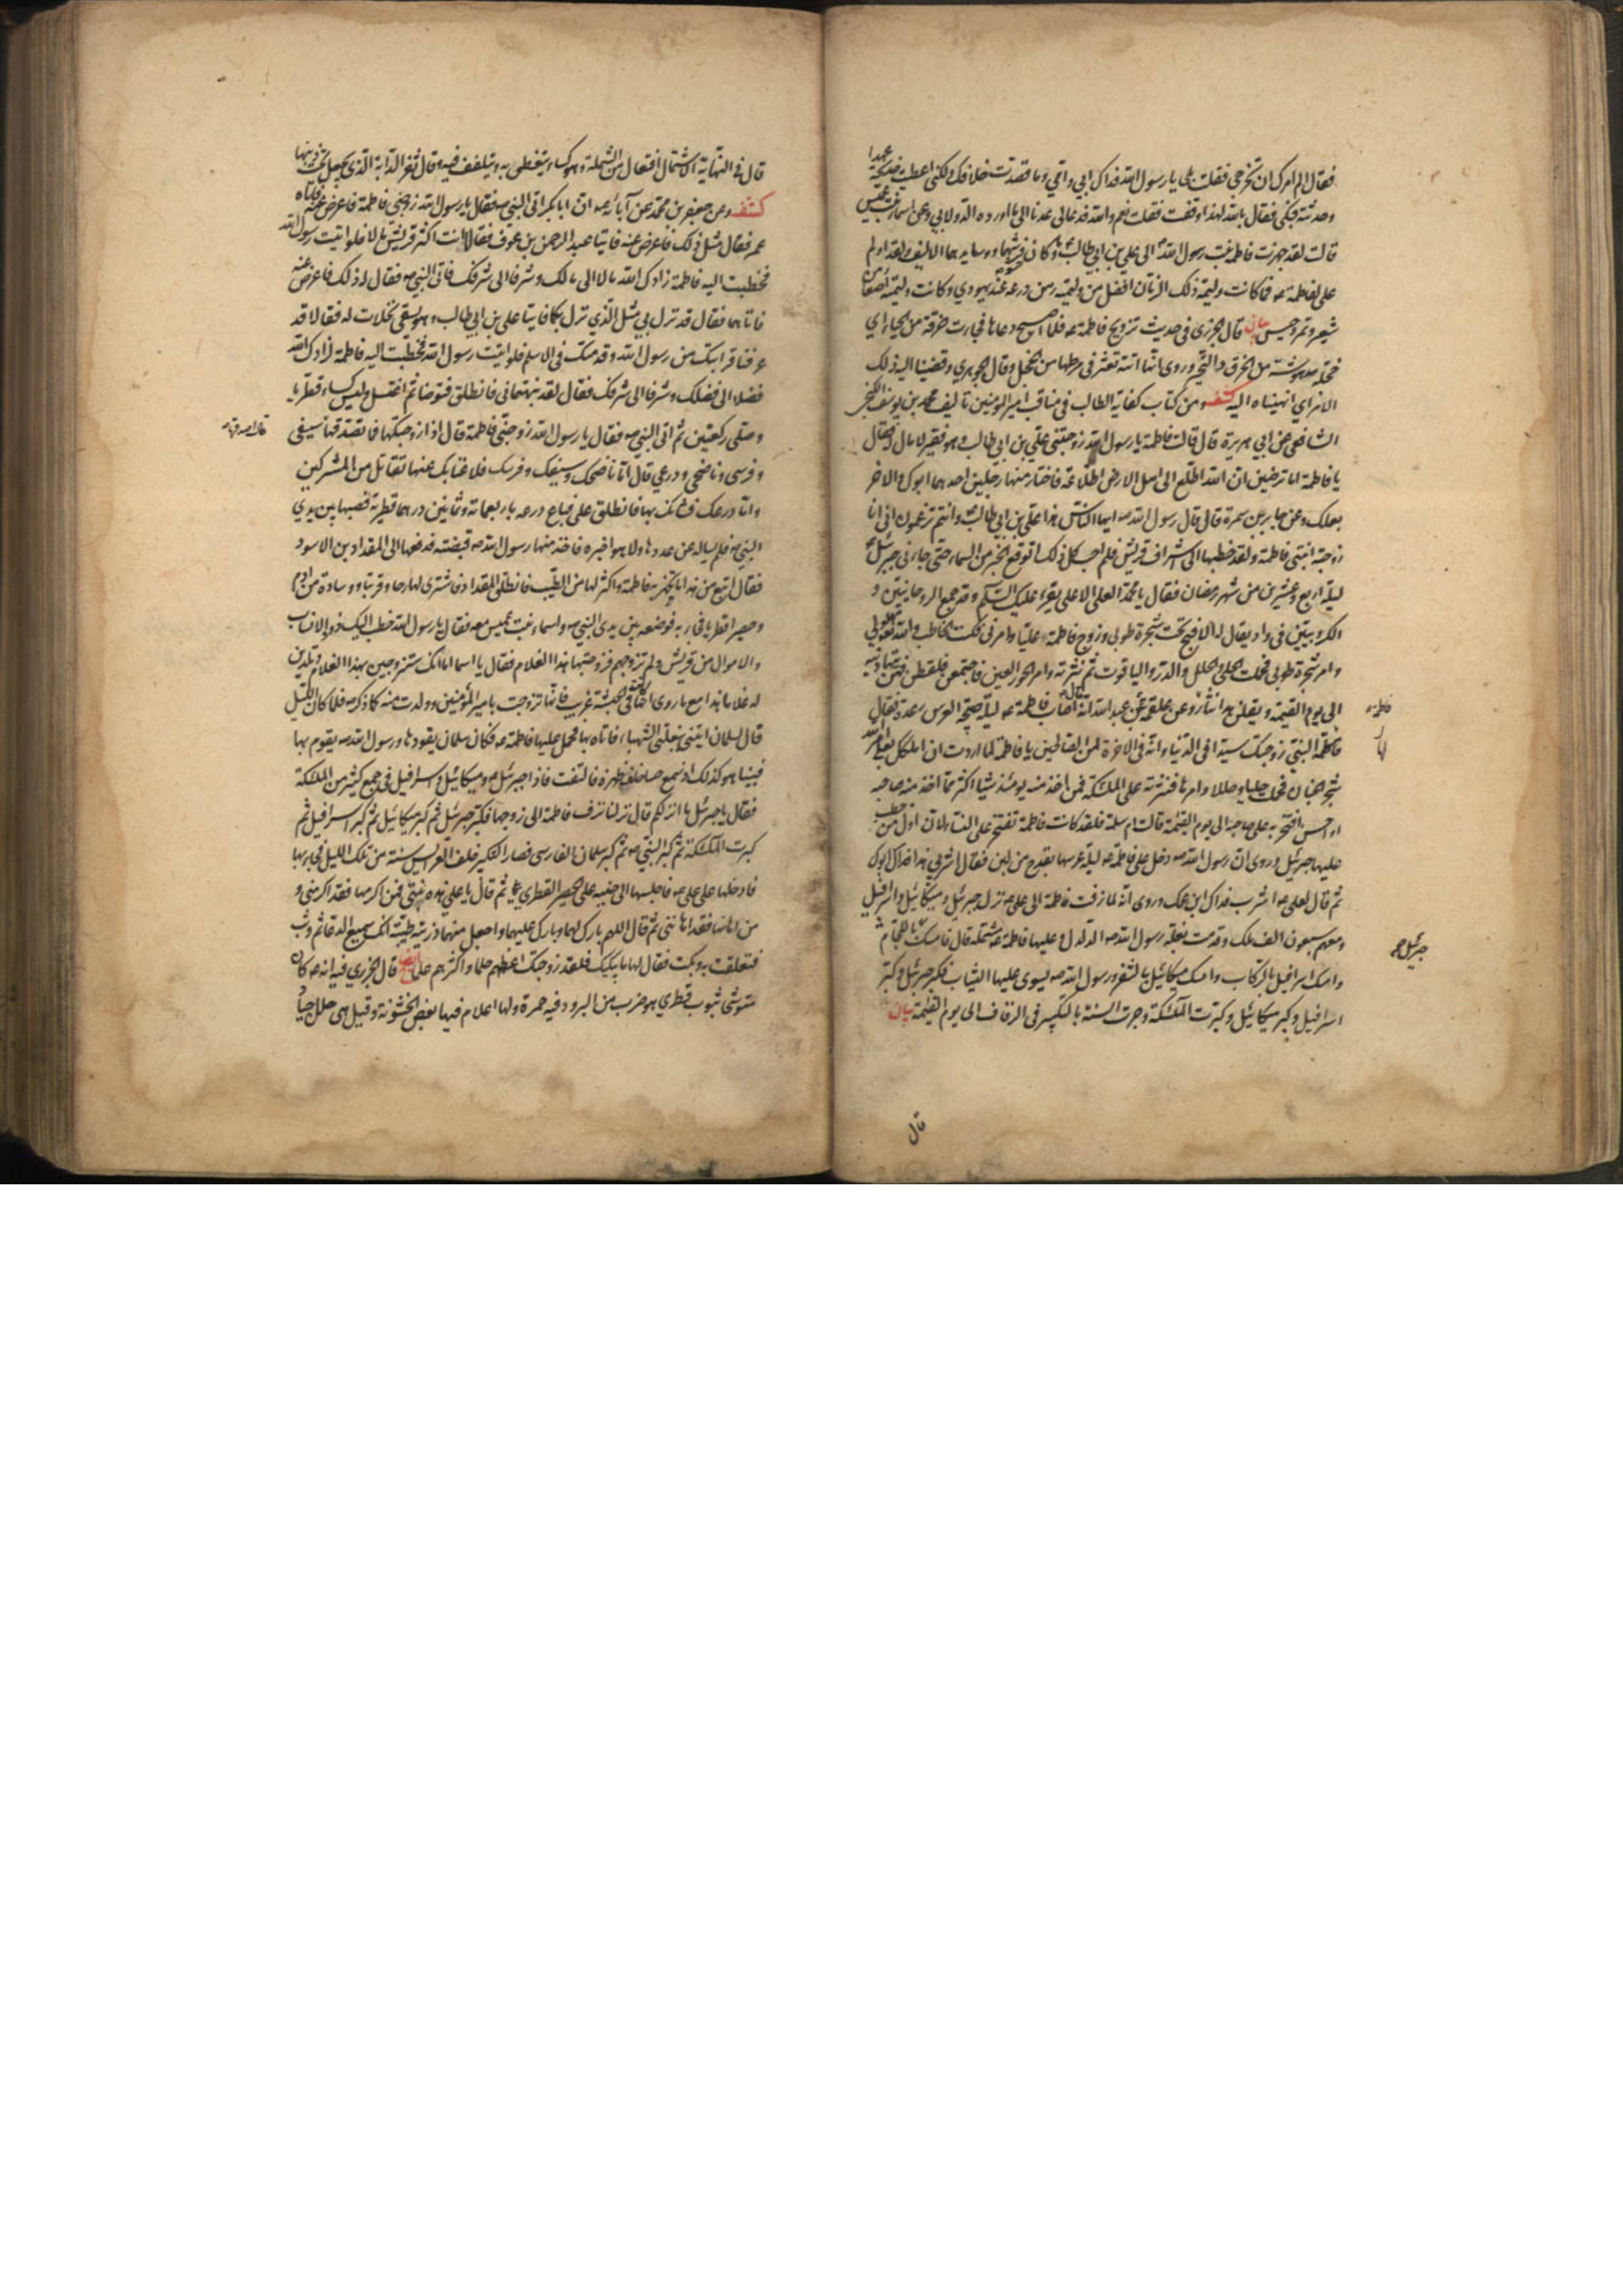 فقال الم امرك ان تخرجي فقلت بلى يا رسول الله فداك ابي وامي وما قصدت خلافك ولكني اعطيت خديجة عهدا
وحدثته فبكى فقال بالله لهذا وقفت فقلت نعم والله فدعا لي عدنا الى ما اورده الدولابي وعن اسماء بنت عميس
قالت لقد جهزت فاطمة بنت رسول الله الى علي بن ابي طالب وكان فرشهما ووسايدهما الا ليف ولقد اولم
علي لفاطمة ع فما كانت وليمة ذلك الزمان افضل من وليمته رهن درعه عند يهودي وكانت وليمته اصعا من
شعير وتمر وحيس بيان قال الجزري في حديث تزويج فاطمة ع فلما اصبح دعاها فجاءت خرقة من الحياء اي
خجلة مدهوشة من الخرق و التحير وروى انها اتته تعثر في مرطها من الخجل وقال الجوهري وقضينا اليه ذلك
الامر اي انهيناه اليه كشف ومن كتاب كفاية الطالب في مناقب امير المومنين تاليف محمد بن يوسف الكنجي
الشافعي عن ابي هريرة قال قالت فاطمة يا رسول الله زوجتني علي بن ابي طالب وهو فقير لا مال له فقال
يا فاطمة اما ترضين ان الله اطلع الى اهل الارض اطلاعة فاختار منها رجلين احدهما ابوك والاخر
بعلك وعن جابر بن سمرة قال قال رسول الله ص ايها الناس هذا علي بن ابي طالب وانتم تزعمون اني انا
زوجته ابنتي فاطمة ولقد خطبها الي اشراف قريش فلم اجب كل ذلك اتوقع الخبر من السماء حتى جاءني جبرئيل
ليلة اربع وعشرين من شهر رمضان فقال يا محمد العلي الاعلى يقرء عليك السلم وقد جمع الروحانيين و
الكروبيين في واد يقال له الافيح تحت شجرة طوبى وزوج فاطمة عليا وامرني فكنت الخاطب والله تعالى الولي
وامر شجرة طوبى فحملت الحلي والحلل والدر والياقوت ثم نثرته وامر الحور العين فاجتمعن فلقطن فهن يتهادينه
الى يوم القيمة ويقلن هذا نثار فاطمة وعن علقمة عن عبد الله انه قال اصاب فاطمة ع ليلة صبيحة العرس رعدة فقال
لها النبي زوجتك سيدا في الدنيا وانه في الاخرة لمن الصالحين يا فاطمة لما اردت ان املكك بعلي امر الله
شجر الجنان فحملت حليا وحللا وامرها فنثرته على الملئكة فمن اخذ منه يومئذ شيئا اكثر مما اخذ منه صاحبه
او احسن افتخر به على صاحبه الى يوم القيمة قالت ام سلمة فلقد كانت فاطمة تفتخر على النساء لان اول من خطب
عليها جبرئيل وروى ان رسول الله ص دخل على فاطمة ع ليلة عرسها بقدح من لبن فقال اشربي هذا فداك ابوك
ثم قال لعلي ع اشرب فداك ابن عمك وروى انه لما زفت فاطمة الى علي ع نزل جبرئيل وميكائيل واسرافيل
ومعهم سبعون الف ملك وقدمت بغلة رسول الله ص الدلدل وعليها فاطمة ع مشتملة قال فامسك جبرئيل باللجام
وامسك اسرافيل بالركاب وامسك ميكائيل بالثفر ورسول الله ص يسوي عليها الثياب فكبر جبرئيل وكبر
اسرافيل وكبر ميكائيل وكبرت الملئكة وجرت السنة بالتكبير في الزفاف الى يوم القيمة بيان
قال
قال في النهاية الاشتمال افتعال من الشملة وهو كساء يتغطى به ويتلفف فيه وقال ثفر الدابة الذي يجعل تحت ذنبها
كشف وعن جعفر بن محمد عن آبائه ع ان ابا بكر اتى النبي ص فقال يا رسول الله زوجني فاطمة فاعرض عنه فاتاه
عمر فقال مثل ذلك فاعرض عنه فاتيا عبد الرحمن بن عوف فقالا انت اكثر قريش مالا فلو اتيت رسول الله
فخطبت اليه فاطمة زادك الله مالا الى مالك وشرفا الى شرفك فاتى النبي ص فقال له ذلك فاعرض عنه
فاتاهما فقال قد نزل بي مثل الذي نزل بكما فاتيا علي بن ابي طالب وهو يسقي نخلات له فقالا قد
عرفنا قرابتك من رسول الله وقدمتك في الاسلم فلو اتيت رسول الله فخطبت اليه فاطمة لزادك الله
فضلا الى فضلك وشرفا الى شرفك فقال لقد نبهتماني فانطلق فتوضا ثم اغتسل ولبس كساء قطريا
وصلى ركعتين ثم اتى النبي ص فقال يا رسول الله زوجني فاطمة قال اذا زوجتكها فما تصدقها قال اصدقها سيفي
وفرسي وناضحي ودرعي قال اما ناضحك وسيفك وفرسك فلا غنا بك عنها تقاتل من المشركين
واما درعك فشانك بها فانطلق علي فباع درعه باربعمائة وثمانين درهما قطرية فصبها بين يدي
النبي ص فلم يساله عن عددها ولا هو اخبره فاخذ منها رسول الله ص قبضته فدفعها الى المقداد بن الاسود
فقال ابتع من هذا ما تجهز به فاطمة واكثر لها من الطيب فانطلق المقداد فاشترى لها رحا وقربة ووسادة من ادم
وحصيرا قطريا فجاء به فوضعه بين يدي النبي ص واسماء بنت عميس معه فقال يا رسول الله خطب اليك ذووا الاسنان
والاموال من قريش ولم تزوجهم فزوجتها هذا الغلام فقال يا اسما اما انك ستزوجين بهذا الغلام وتلدين
له غلاما هذا مع ما روى انها كانت في الحبشة غريب فانها تزوجت بامير المؤمنين وولدت منه كما ذكر ص فلما كان الليل
قال لسلمان ايتني ببغلتي الشهباء فاتاه بها فحمل عليها فاطمة ع فكان سلمان يقود بها ورسول الله ص يقوم بها
فبينا هو كذلك اذ سمع حسا خلف ظهره فالتفت فاذا جبرئيل وميكائيل واسرافيل في جمع كثير من الملئكة
فقال يا جبرئيل ما انزلكم قال نزلنا نزف فاطمة الى زوجها فكبر جبرئيل ثم كبر ميكائيل ثم كبر اسرافيل ثم
كبرت الملئكة ثم كبر النبي ص ثم كبر سلمان الفارسي فصار التكبير خلف العرايس سنة من تلك الليلة فجاء بها
فادخلها على علي ع فاجلسها الى جنبه على الحصير القطري ثم قال يا علي هذه بنتي فمن اكرمها فقد اكرمني و
من اهانها فقد اهانني ثم قال اللهم بارك لهما وبارك عليهما واجعل منهما ذرية طيبة انك سميع الدعاء ثم وثب
فتعلقت به وبكت فقال لها ما يبكيك فلقد زوجتك اعظمهم حلما واكثرهم علما قال الجزري فيه انه ع كان
متوشحا بثوب قطري هو ضرب من البرود فيه حمرة ولها اعلام فيها بعض الخشونة وقيل هي حلل جياد